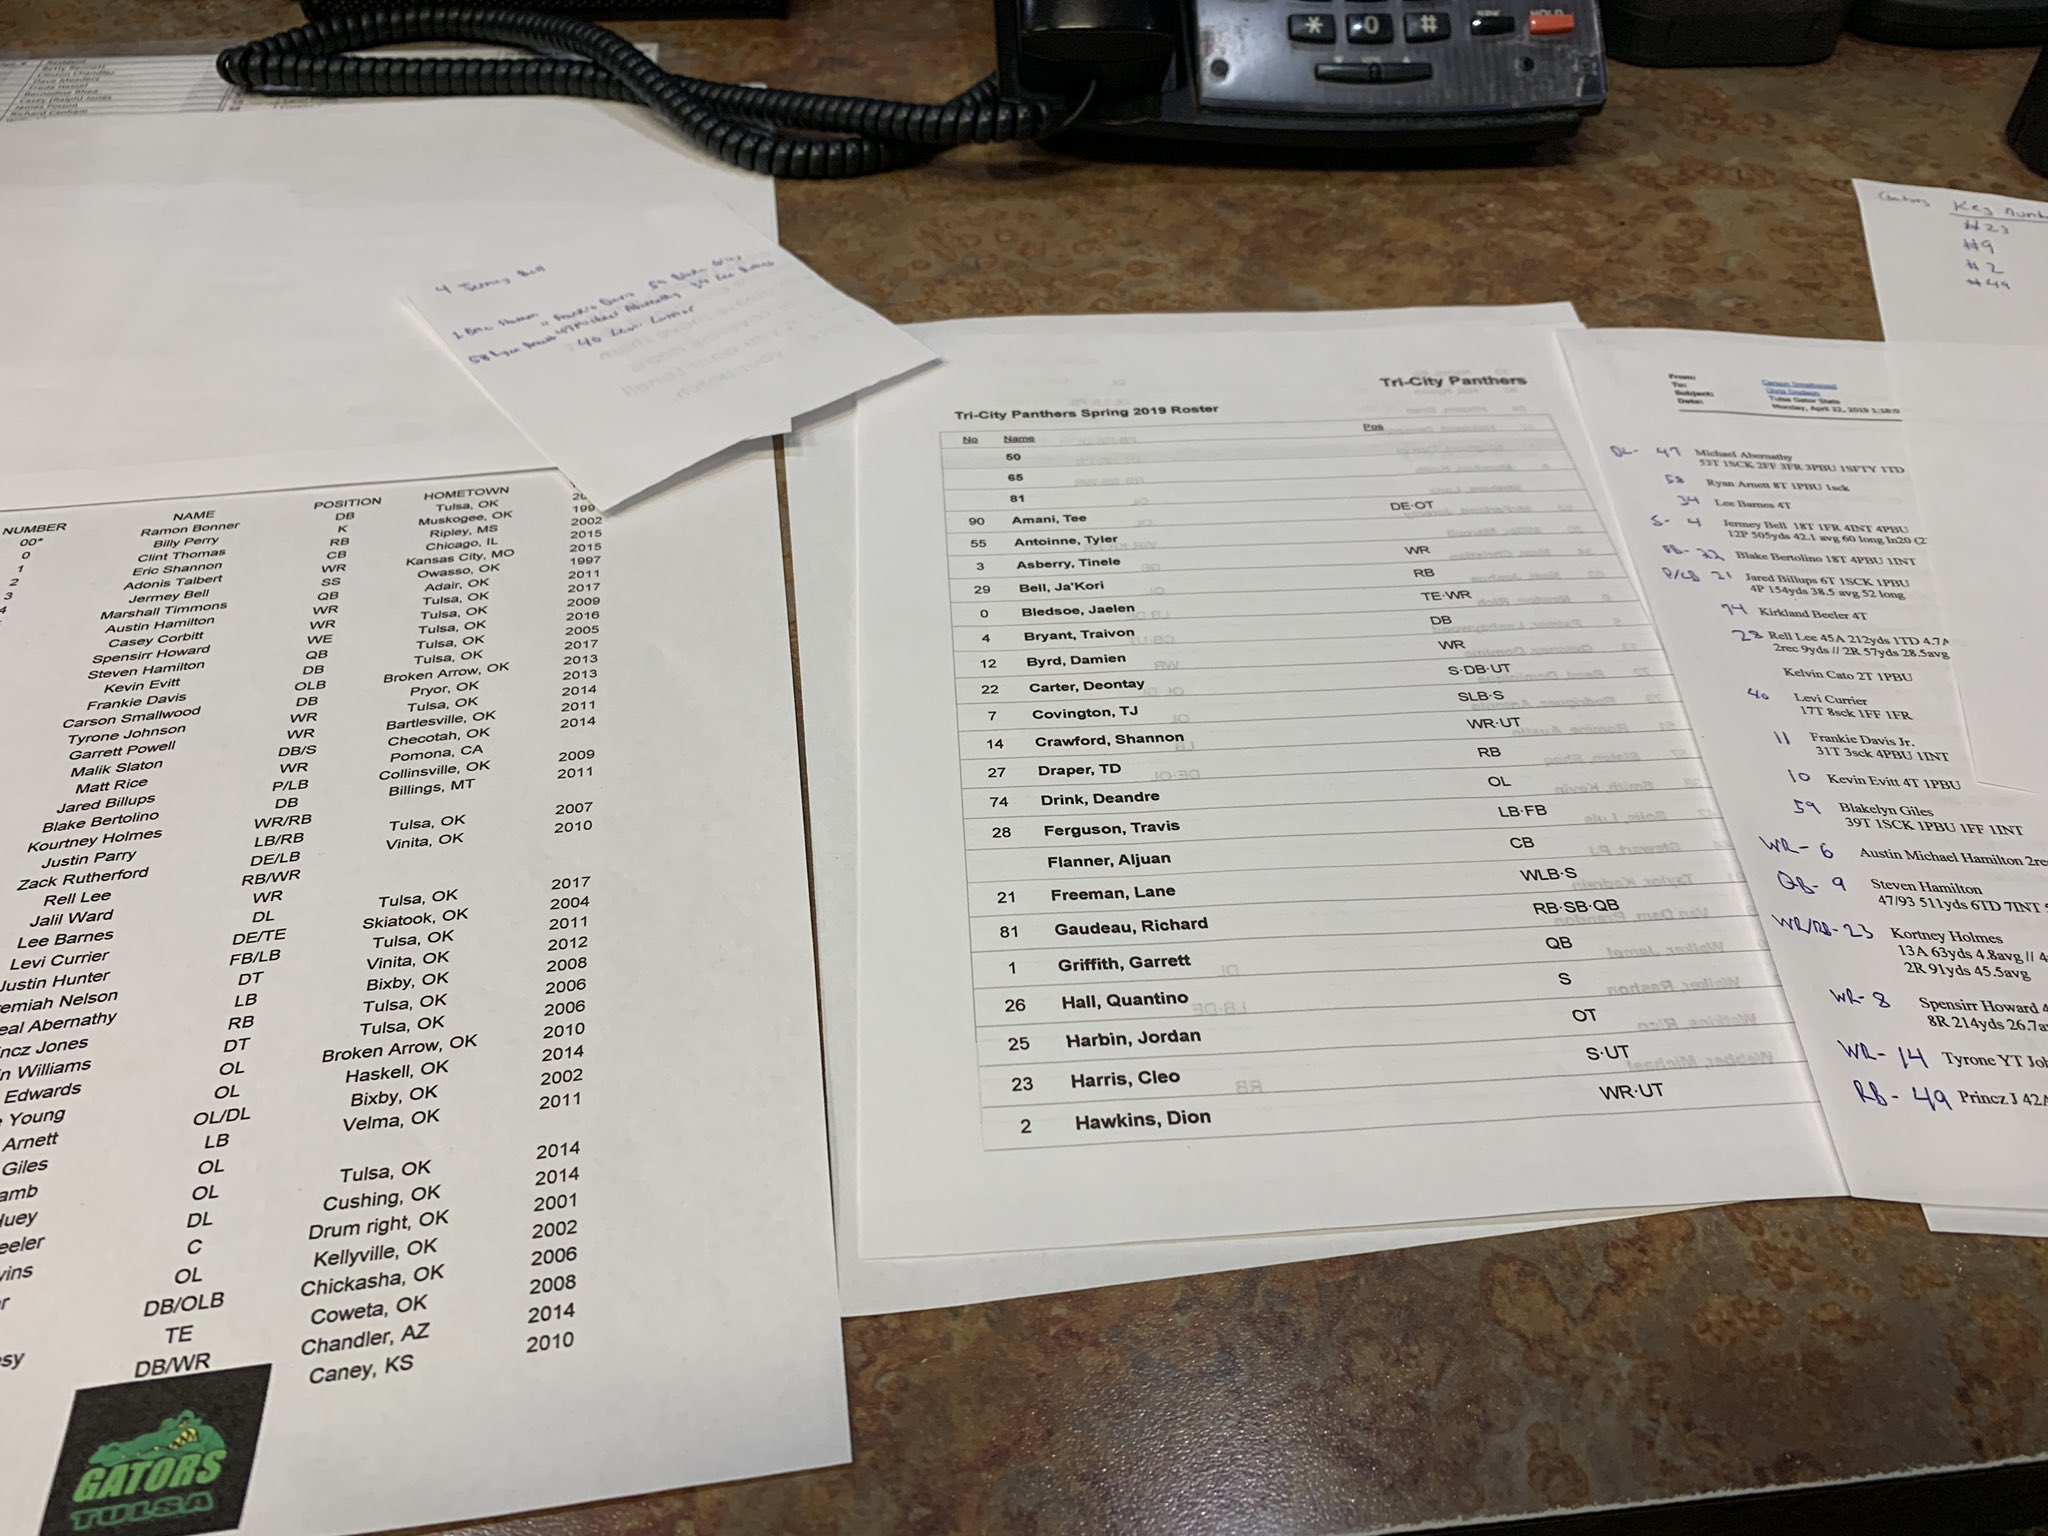 Resident
Betty Bennett
Clinton Chandler
Dave Meaders
Freda Hassel
Bernadine Rhea
Casey (Ralph) Jones
James Posson
Richard Canham
* 0 #
HOLD
4 Jermey Bell
1 Eric Shannon 11 Frankie Davis 59 Blake Giles
58 Ryan Arnett 47 Michael Abernathy 34 Lee Barnes
40 Levi Currier
NUMBER NAME POSITION HOMETOWN
00* Ramon Bonner DB Tulsa, OK 199
0 Billy Perry K Muskogee, OK 2002
1 Clint Thomas RB Ripley, MS 2015
2 Eric Shannon CB Chicago, IL 2015
3 Adonis Talbert WR Kansas City, MO 1997
4 Jermey Bell SS Owasso, OK 2011
Marshall Timmons QB Adair, OK 2017
Austin Hamilton WR Tulsa, OK 2009
Casey Corbitt WR Tulsa, OK 2016
Spensirr Howard WE Tulsa, OK 2005
Steven Hamilton QB Tulsa, OK 2017
Kevin Evitt DB Tulsa, OK 2013
Frankie Davis OLB Broken Arrow, OK 2013
Carson Smallwood DB Pryor, OK 2014
Tyrone Johnson WR Tulsa, OK 2011
Garrett Powell WR Bartlesville, OK 2014
Malik Slaton DB/S Checotah, OK
Matt Rice WR Pomona, CA 2009
Jared Billups P/LB Collinsville, OK 2011
Blake Bertolino DB Billings, MT
Kourtney Holmes WR/RB Tulsa, OK 2007
Justin Parry LB/RB Vinita, OK 2010
Zack Rutherford DE/LB
Rell Lee RB/WR
Jalil Ward WR Tulsa, OK 2017
Lee Barnes DL Skiatook, OK 2004
Levi Currier DE/TE Tulsa, OK 2011
Justin Hunter FB/LB Vinita, OK 2012
remiah Nelson DT Bixby, OK 2008
eal Abernathy LB Tulsa, OK 2006
incz Jones RB Tulsa, OK 2006
n Williams DT Broken Arrow, OK 2010
Edwards OL Haskell, OK 2014
Young OL Bixby, OK 2002
Arnett OL/DL Velma, OK 2011
Giles LB
amb OL Tulsa, OK 2014
Huey OL Cushing, OK 2014
eeler DL Drum right, OK 2001
vins C Kellyville, OK 2002
r OL Chickasha, OK 2006
DB/OLB Coweta, OK 2008
TE Chandler, AZ 2014
sy DB/WR Caney, KS 2010
GATORS
TULSA
Tri-City Panthers
Tri-City Panthers Spring 2019 Roster
No Name Pos
50
65
81
90 Amani, Tee DE·OT
55 Antoinne, Tyler
3 Asberry, Tinele WR
29 Bell, Ja'Kori RB
0 Bledsoe, Jaelen TE·WR
4 Bryant, Traivon DB
12 Byrd, Damien WR
22 Carter, Deontay S·DB·UT
7 Covington, TJ SLB·S
14 Crawford, Shannon WR·UT
27 Draper, TD RB
74 Drink, Deandre OL
28 Ferguson, Travis LB·FB
Flanner, Aljuan CB
21 Freeman, Lane WLB·S
81 Gaudeau, Richard RB·SB·QB
1 Griffith, Garrett QB
26 Hall, Quantino S
25 Harbin, Jordan OT
23 Harris, Cleo S·UT
2 Hawkins, Dion WR·UT
From: Carson Smallwood
To: Chris Dodson
Subject: Tulsa Gator Stats
Date: Monday, April 22, 2019 1:18:0
DL- 47 Michael Abernathy
53T 1SCK 2FF 3FR 3PBU 1SFTY 1TD
58 Ryan Arnett 8T 1PBU 1sck
34 Lee Barnes 4T
S- 4 Jermey Bell 18T 1FR 4INT 4PBU
12P 505yds 42.1 avg 60 long In20 (2
DB- 22 Blake Bertolino 18T 4PBU 1INT
P/LB 21 Jared Billups 6T 1SCK 1PBU
4P 154yds 38.5 avg 52 long
74 Kirkland Beeler 4T
28 Rell Lee 45A 212yds 1TD 4.7A
2rec 9yds // 2R 57yds 28.5avg
Kelvin Cato 2T 1PBU
40 Levi Currier
17T 8sck 1FF 1FR
11 Frankie Davis Jr.
31T 3sck 4PBU 1INT
10 Kevin Evitt 4T 1PBU
59 Blakelyn Giles
39T 1SCK 1PBU 1FF 1INT
WR- 6 Austin Michael Hamilton 2re
QB- 9 Steven Hamilton
47/93 511yds 6TD 7INT
WR/RB- 23 Kortney Holmes
13A 63yds 4.8avg // 4
2R 91yds 45.5avg
WR- 8 Spensirr Howard 4
8R 214yds 26.7a
WR- 14 Tyrone YT Joh
RB- 49 Princz J 42A
Gators Key Num
#23
#9
#2
#49